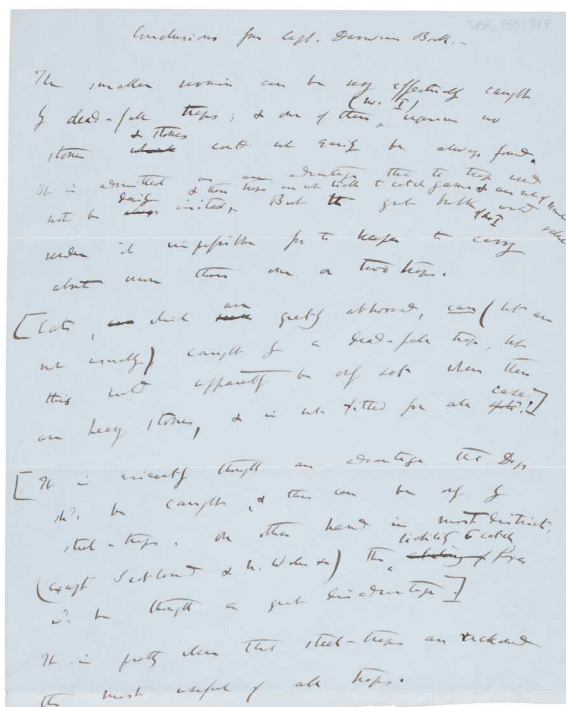 DAR. 185:147
Conclusions from Capt. Darwin's Book.—
The smaller vermin can be very effectively caught
by dead-fall traps; & one of these, (no. I) requires no
stones & stones could not easily be always found.
It is admitted as an advantage that the traps need
not be daily visited, & these traps are not liable to catch game & are not much
But the great bulk of No I would
render it impossible for the keeper to carry
about more than one or two traps.
[Cats, which are greatly abhorred, can (but are
not usually) caught by a dead-fall trap, but
this would apparently be only safe when there
are heavy stones, & is not fitted for all case!]
[It is evidently thought an advantage that Dogs
shd. be caught, & this can be only by
steel-traps. On other hand in most districts,
(except Scotland & N. Wales &c) the liability to catch Foxes
wd. be thought a great disadvantage]
It is pretty clear that steel-traps are reckoned
the most useful of all traps.